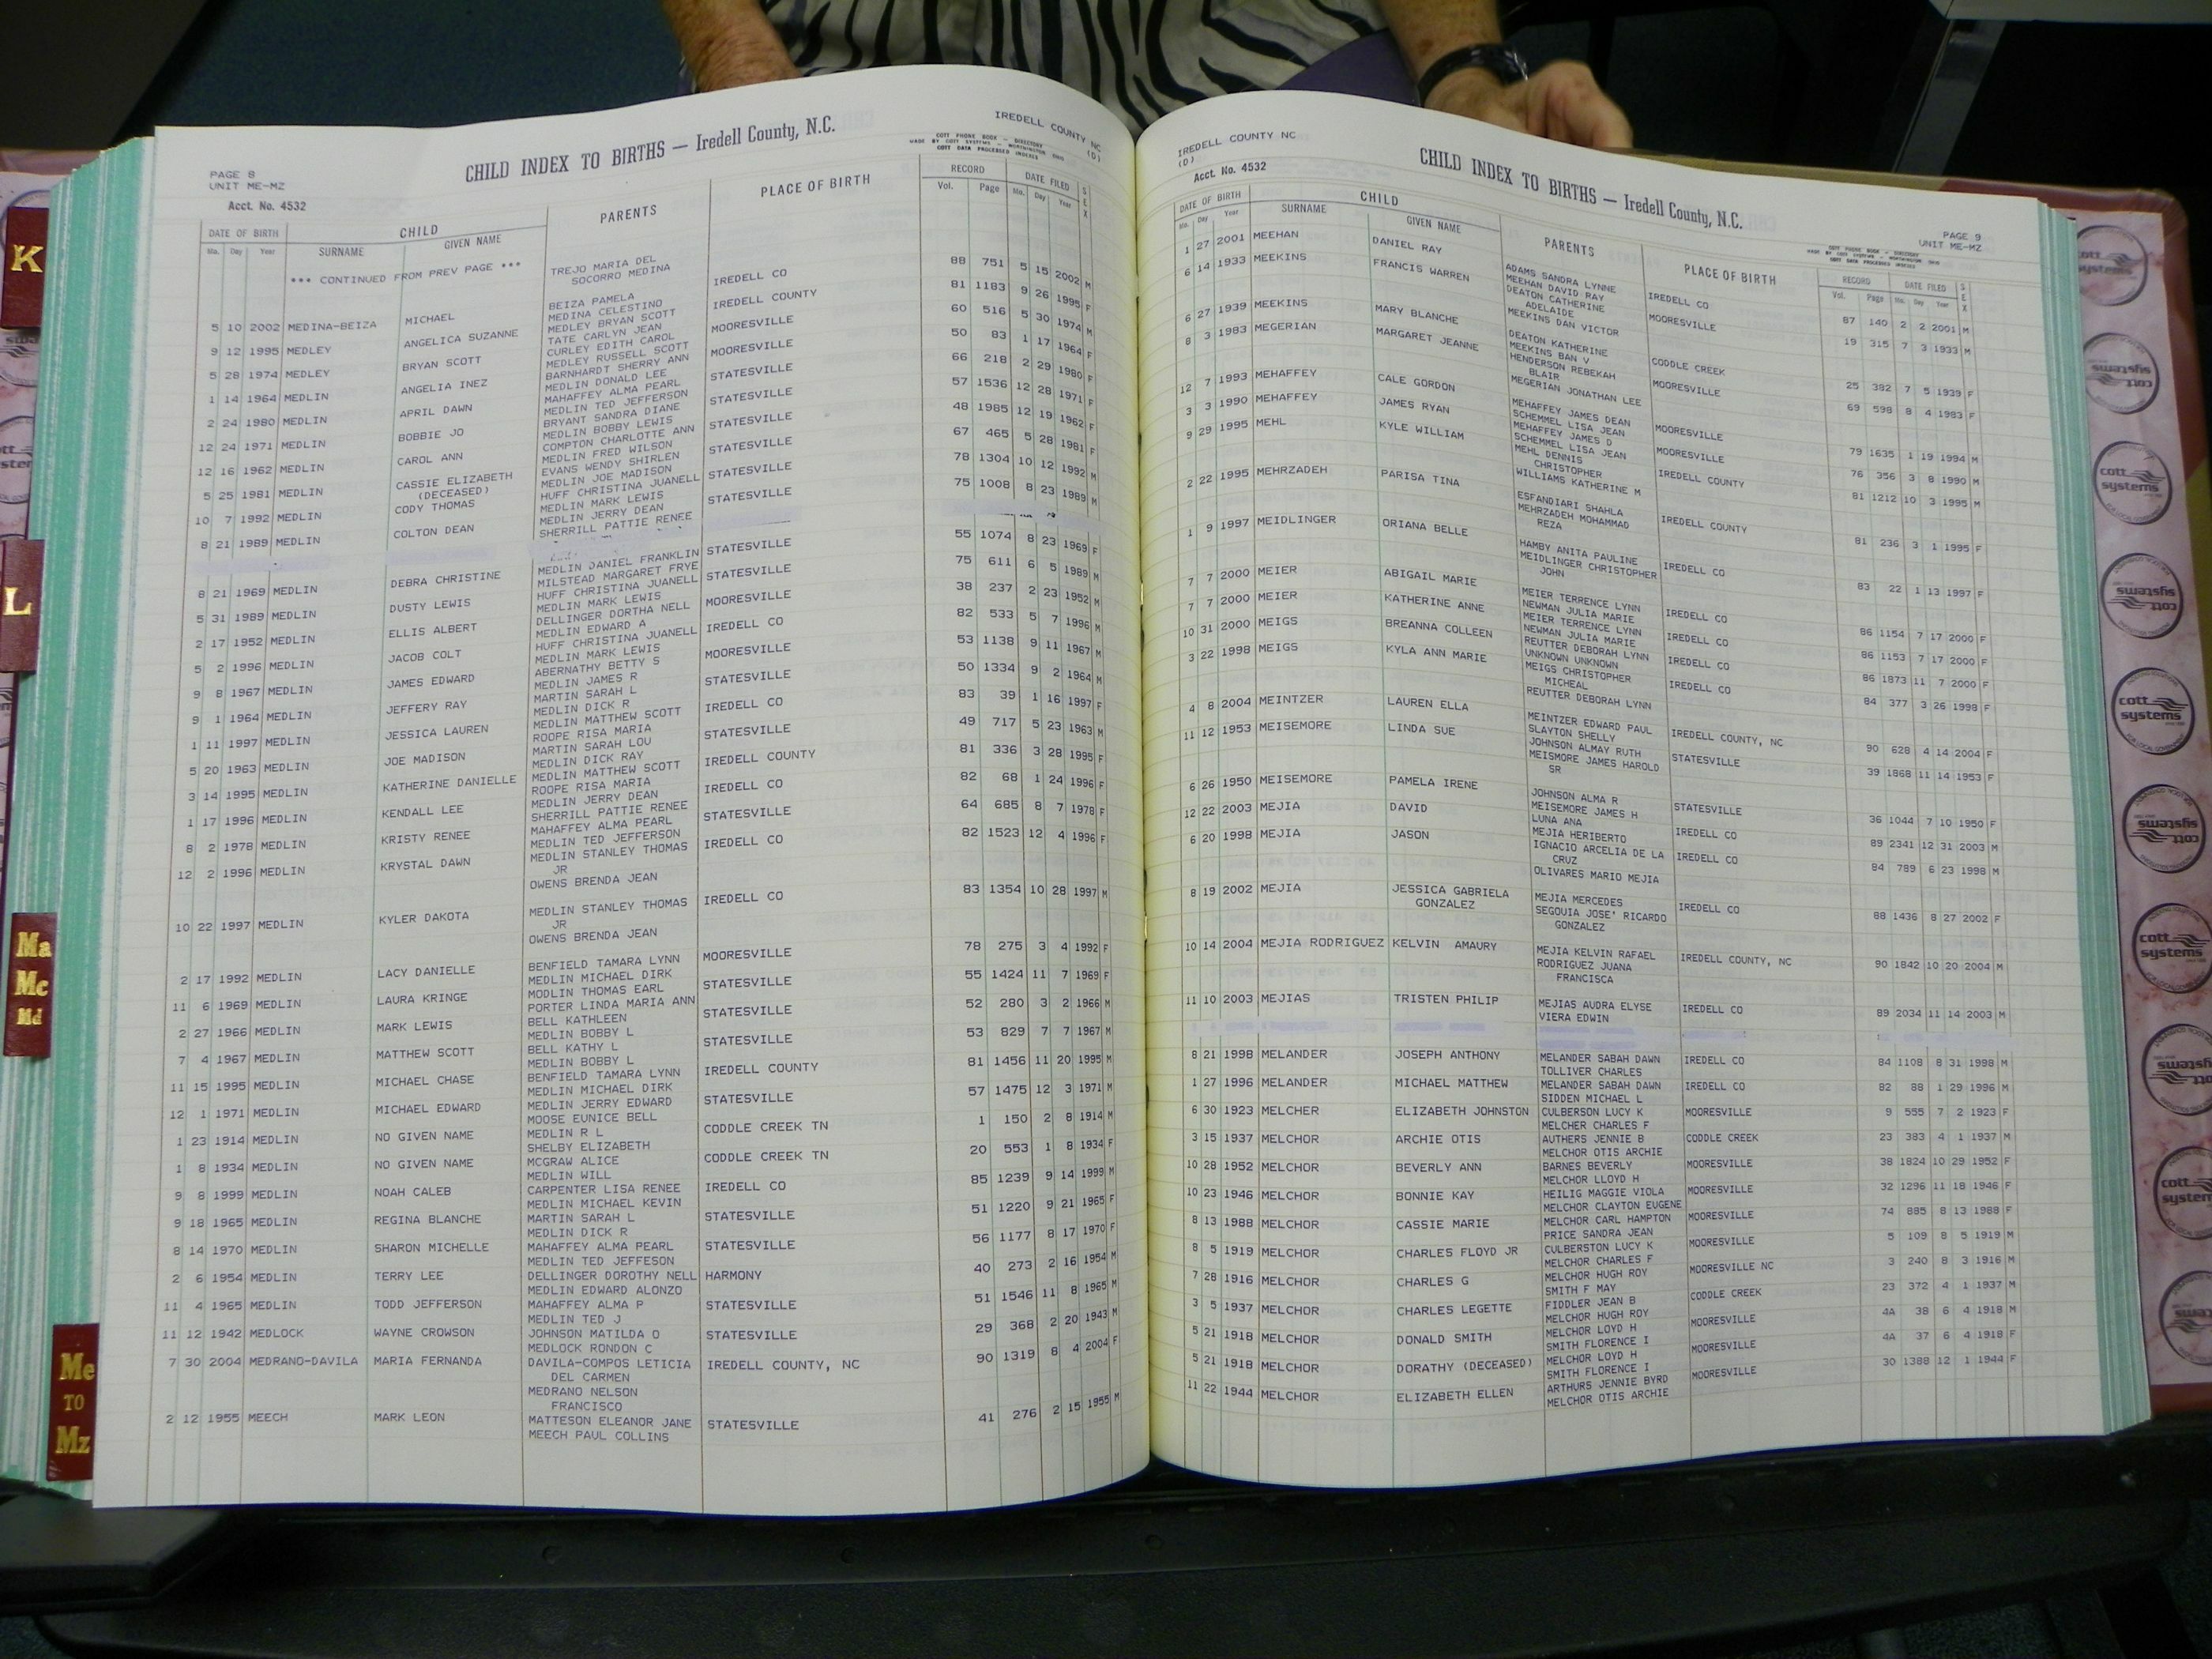 K
L
Ma
Mc
Md
Me
TO
Mz
PAGE 8
UNIT ME-MZ
Acct. No. 4532
CHILD INDEX TO BIRTHS — Iredell County, N.C.
IREDELL COUNTY NC
(D)
COTT PHONE BOOK - DIRECTORY
MADE BY COTT SYSTEMS - WORTHINGTON OHIO
COTT DATA PROCESSED INDEXES
DATE OF BIRTH CHILD PARENTS PLACE OF BIRTH RECORD DATE FILED SEX
Mo. Day Year SURNAME GIVEN NAME Vol. Page Mo. Day Year
*** CONTINUED FROM PREV PAGE *** TREJO MARIA DEL
SOCORRO MEDINA
5 10 2002 MEDINA-BEIZA MICHAEL BEIZA PAMELA IREDELL CO 88 751 5 15 2002 M
MEDINA CELESTINO
9 12 1995 MEDLEY ANGELICA SUZANNE MEDLEY BRYAN SCOTT IREDELL COUNTY 81 1183 9 26 1995 F
TATE CARLYN JEAN
5 28 1974 MEDLEY BRYAN SCOTT CURLEY EDITH CAROL MOORESVILLE 60 516 5 30 1974 M
MEDLEY RUSSELL SCOTT
1 14 1964 MEDLIN ANGELIA INEZ BARNHARDT SHERRY ANN MOORESVILLE 50 83 1 17 1964 F
MEDLIN DONALD LEE
2 24 1980 MEDLIN APRIL DAWN MAHAFFEY ALMA PEARL STATESVILLE 66 218 2 29 1980 F
MEDLIN TED JEFFERSON
12 24 1971 MEDLIN BOBBIE JO BRYANT SANDRA DIANE STATESVILLE 57 1536 12 28 1971 F
MEDLIN BOBBY LEWIS
12 16 1962 MEDLIN CAROL ANN COMPTON CHARLOTTE ANN STATESVILLE 48 1985 12 19 1962 F
MEDLIN FRED WILSON
5 25 1981 MEDLIN CASSIE ELIZABETH EVANS WENDY SHIRLEN STATESVILLE 67 465 5 28 1981 F
(DECEASED) MEDLIN JOE MADISON
10 7 1992 MEDLIN CODY THOMAS HUFF CHRISTINA JUANELL STATESVILLE 78 1304 10 12 1992 M
MEDLIN MARK LEWIS
8 21 1989 MEDLIN COLTON DEAN MEDLIN JERRY DEAN STATESVILLE 75 1008 8 23 1989 M
SHERRILL PATTIE RENEE
8 21 1969 MEDLIN DEBRA CHRISTINE MEDLIN DANIEL FRANKLIN STATESVILLE 55 1074 8 23 1969 F
MILSTEAD MARGARET FRYE
5 31 1989 MEDLIN DUSTY LEWIS HUFF CHRISTINA JUANELL STATESVILLE 75 611 6 5 1989 M
MEDLIN MARK LEWIS
2 17 1952 MEDLIN ELLIS ALBERT DELLINGER DORTHA NELL MOORESVILLE 38 237 2 23 1952 M
MEDLIN EDWARD A
5 2 1996 MEDLIN JACOB COLT HUFF CHRISTINA JUANELL IREDELL CO 82 533 5 7 1996 M
MEDLIN MARK LEWIS
9 8 1967 MEDLIN JAMES EDWARD ABERNATHY BETTY S MOORESVILLE 53 1138 9 11 1967 M
MEDLIN JAMES R
9 1 1964 MEDLIN JEFFERY RAY MARTIN SARAH L STATESVILLE 50 1334 9 2 1964 M
MEDLIN DICK R
1 11 1997 MEDLIN JESSICA LAUREN MEDLIN MATTHEW SCOTT IREDELL CO 83 39 1 16 1997 F
ROOPE RISA MARIA
5 20 1963 MEDLIN JOE MADISON MARTIN SARAH LOU STATESVILLE 49 717 5 23 1963 M
MEDLIN DICK RAY
3 14 1995 MEDLIN KATHERINE DANIELLE MEDLIN MATTHEW SCOTT IREDELL COUNTY 81 336 3 28 1995 F
ROOPE RISA MARIA
1 17 1996 MEDLIN KENDALL LEE MEDLIN JERRY DEAN IREDELL CO 82 68 1 24 1996 F
SHERRILL PATTIE RENEE
8 2 1978 MEDLIN KRISTY RENEE MAHAFFEY ALMA PEARL STATESVILLE 64 685 8 7 1978 F
MEDLIN TED JEFFERSON
12 2 1996 MEDLIN KRYSTAL DAWN MEDLIN STANLEY THOMAS IREDELL CO 82 1523 12 4 1996 F
JR
OWENS BRENDA JEAN
10 22 1997 MEDLIN KYLER DAKOTA MEDLIN STANLEY THOMAS IREDELL CO 83 1354 10 28 1997 M
JR
OWENS BRENDA JEAN
2 17 1992 MEDLIN LACY DANIELLE BENFIELD TAMARA LYNN MOORESVILLE 78 275 3 4 1992 F
MEDLIN MICHAEL DIRK
11 6 1969 MEDLIN LAURA KRINGE MODLIN THOMAS EARL STATESVILLE 55 1424 11 7 1969 F
PORTER LINDA MARIA ANN
2 27 1966 MEDLIN MARK LEWIS BELL KATHLEEN STATESVILLE 52 280 3 2 1966 M
MEDLIN BOBBY L
7 4 1967 MEDLIN MATTHEW SCOTT BELL KATHY L STATESVILLE 53 829 7 7 1967 M
MEDLIN BOBBY L
11 15 1995 MEDLIN MICHAEL CHASE BENFIELD TAMARA LYNN IREDELL COUNTY 81 1456 11 20 1995 M
MEDLIN MICHAEL DIRK
12 1 1971 MEDLIN MICHAEL EDWARD MEDLIN JERRY EDWARD STATESVILLE 57 1475 12 3 1971 M
MOOSE EUNICE BELL
1 23 1914 MEDLIN NO GIVEN NAME MEDLIN R L CODDLE CREEK TN 1 150 2 8 1914 M
SHELBY ELIZABETH
1 8 1934 MEDLIN NO GIVEN NAME MCGRAW ALICE CODDLE CREEK TN 20 553 1 8 1934 F
MEDLIN WILL
9 8 1999 MEDLIN NOAH CALEB CARPENTER LISA RENEE IREDELL CO 85 1239 9 14 1999 M
MEDLIN MICHAEL KEVIN
9 18 1965 MEDLIN REGINA BLANCHE MARTIN SARAH L STATESVILLE 51 1220 9 21 1965 F
MEDLIN DICK R
8 14 1970 MEDLIN SHARON MICHELLE MAHAFFEY ALMA PEARL STATESVILLE 56 1177 8 17 1970 F
MEDLIN TED JEFFESON
2 6 1954 MEDLIN TERRY LEE DELLINGER DOROTHY NELL HARMONY 40 273 2 16 1954 M
MEDLIN EDWARD ALONZO
11 4 1965 MEDLIN TODD JEFFERSON MAHAFFEY ALMA P STATESVILLE 51 1546 11 8 1965 M
MEDLIN TED J
11 12 1942 MEDLOCK WAYNE CROWSON JOHNSON MATILDA O STATESVILLE 29 368 2 20 1943 M
MEDLOCK RONDON C
7 30 2004 MEDRANO-DAVILA MARIA FERNANDA DAVILA-COMPOS LETICIA IREDELL COUNTY, NC 90 1319 8 4 2004 F
DEL CARMEN
MEDRANO NELSON
FRANCISCO
2 12 1955 MEECH MARK LEON MATTESON ELEANOR JANE STATESVILLE 41 276 2 15 1955 M
MEECH PAUL COLLINS
IREDELL COUNTY NC
(D)
Acct. No. 4532
CHILD INDEX TO BIRTHS — Iredell County, N.C.
PAGE 9
UNIT ME-MZ
COTT PHONE BOOK - DIRECTORY
MADE BY COTT SYSTEMS - WORTHINGTON OHIO
COTT DATA PROCESSED INDEXES
DATE OF BIRTH CHILD PARENTS PLACE OF BIRTH RECORD DATE FILED SEX
Mo. Day Year SURNAME GIVEN NAME Vol. Page Mo. Day Year
1 27 2001 MEEHAN DANIEL RAY ADAMS SANDRA LYNNE IREDELL CO 87 140 2 2 2001 M
MEEHAN DAVID RAY
6 14 1933 MEEKINS FRANCIS WARREN DEATON CATHERINE MOORESVILLE 19 315 7 3 1933 M
ADELAIDE
MEEKINS DAN VICTOR
6 27 1939 MEEKINS MARY BLANCHE DEATON KATHERINE CODDLE CREEK 25 382 7 5 1939 F
MEEKINS BAN V
8 3 1983 MEGERIAN MARGARET JEANNE HENDERSON REBEKAH MOORESVILLE 69 598 8 4 1983 F
BLAIR
MEGERIAN JONATHAN LEE
12 7 1993 MEHAFFEY CALE GORDON MEHAFFEY JAMES DEAN MOORESVILLE 79 1635 1 19 1994 M
SCHEMMEL LISA JEAN
3 3 1990 MEHAFFEY JAMES RYAN MEHAFFEY JAMES D MOORESVILLE 76 356 3 8 1990 M
SCHEMMEL LISA JEAN
9 29 1995 MEHL KYLE WILLIAM MEHL DENNIS IREDELL COUNTY 81 1212 10 3 1995 M
CHRISTOPHER
WILLIAMS KATHERINE M
2 22 1995 MEHRZADEH PARISA TINA ESFANDIARI SHAHLA IREDELL COUNTY 81 236 3 1 1995 F
MEHRZADEH MOHAMMAD
REZA
1 9 1997 MEIDLINGER ORIANA BELLE HAMBY ANITA PAULINE IREDELL CO 83 22 1 13 1997 F
MEIDLINGER CHRISTOPHER
JOHN
7 7 2000 MEIER ABIGAIL MARIE MEIER TERRENCE LYNN IREDELL CO 86 1154 7 17 2000 F
NEWMAN JULIA MARIE
7 7 2000 MEIER KATHERINE ANNE MEIER TERRENCE LYNN IREDELL CO 86 1153 7 17 2000 F
NEWMAN JULIA MARIE
10 31 2000 MEIGS BREANNA COLLEEN REUTTER DEBORAH LYNN IREDELL CO 86 1873 11 7 2000 F
UNKNOWN UNKNOWN
3 22 1998 MEIGS KYLA ANN MARIE MEIGS CHRISTOPHER IREDELL CO 84 377 3 26 1998 F
MICHEAL
REUTTER DEBORAH LYNN
4 8 2004 MEINTZER LAUREN ELLA MEINTZER EDWARD PAUL IREDELL COUNTY, NC 90 628 4 14 2004 F
SLAYTON SHELLY
11 12 1953 MEISEMORE LINDA SUE JOHNSON ALMAY RUTH STATESVILLE 39 1868 11 14 1953 F
MEISMORE JAMES HAROLD
SR
6 26 1950 MEISEMORE PAMELA IRENE JOHNSON ALMA R STATESVILLE 36 1044 7 10 1950 F
MEISEMORE JAMES H
12 22 2003 MEJIA DAVID LUNA ANA IREDELL CO 89 2341 12 31 2003 M
MEJIA HERIBERTO
6 20 1998 MEJIA JASON IGNACIO ARCELIA DE LA IREDELL CO 84 789 6 23 1998 M
CRUZ
OLIVARES MARIO MEJIA
8 19 2002 MEJIA JESSICA GABRIELA MEJIA MERCEDES IREDELL CO 88 1436 8 27 2002 F
GONZALEZ SEGOUIA JOSE' RICARDO
GONZALEZ
10 14 2004 MEJIA RODRIGUEZ KELVIN AMAURY MEJIA KELVIN RAFAEL IREDELL COUNTY, NC 90 1842 10 20 2004 M
RODRIGUEZ JUANA
FRANCISCA
11 10 2003 MEJIAS TRISTEN PHILIP MEJIAS AUDRA ELYSE IREDELL CO 89 2034 11 14 2003 M
VIERA EDWIN
8 21 1998 MELANDER JOSEPH ANTHONY MELANDER SABAH DAWN IREDELL CO 84 1108 8 31 1998 M
TOLLIVER CHARLES
1 27 1996 MELANDER MICHAEL MATTHEW MELANDER SABAH DAWN IREDELL CO 82 88 1 29 1996 M
SIDDEN MICHAEL L
6 30 1923 MELCHER ELIZABETH JOHNSTON CULBERSON LUCY K MOORESVILLE 9 555 7 2 1923 F
MELCHER CHARLES F
3 15 1937 MELCHOR ARCHIE OTIS AUTHERS JENNIE B CODDLE CREEK 23 383 4 1 1937 M
MELCHOR OTIS ARCHIE
10 28 1952 MELCHOR BEVERLY ANN BARNES BEVERLY MOORESVILLE 38 1824 10 29 1952 F
MELCHOR LLOYD H
10 23 1946 MELCHOR BONNIE KAY HEILIG MAGGIE VIOLA MOORESVILLE 32 1296 11 18 1946 F
MELCHOR CLAYTON EUGENE
8 13 1988 MELCHOR CASSIE MARIE MELCHOR CARL HAMPTON MOORESVILLE 74 885 8 13 1988 F
PRICE SANDRA JEAN
8 5 1919 MELCHOR CHARLES FLOYD JR CULBERSTON LUCY K MOORESVILLE 5 109 8 5 1919 M
MELCHOR CHARLES F
7 28 1916 MELCHOR CHARLES G MELCHOR HUGH ROY MOORESVILLE NC 3 240 8 3 1916 M
SMITH F MAY
3 5 1937 MELCHOR CHARLES LEGETTE FIDDLER JEAN B CODDLE CREEK 23 372 4 1 1937 M
MELCHOR HUGH ROY
5 21 1918 MELCHOR DONALD SMITH MELCHOR LOYD H MOORESVILLE 4A 38 6 4 1918 M
SMITH FLORENCE I
5 21 1918 MELCHOR DORATHY (DECEASED) MELCHOR LOYD H MOORESVILLE 4A 37 6 4 1918 F
SMITH FLORENCE I
11 22 1944 MELCHOR ELIZABETH ELLEN ARTHURS JENNIE BYRD MOORESVILLE 30 1388 12 1 1944 F
MELCHOR OTIS ARCHIE
cott
systems
cott
systems
cott
systems
cott
systems